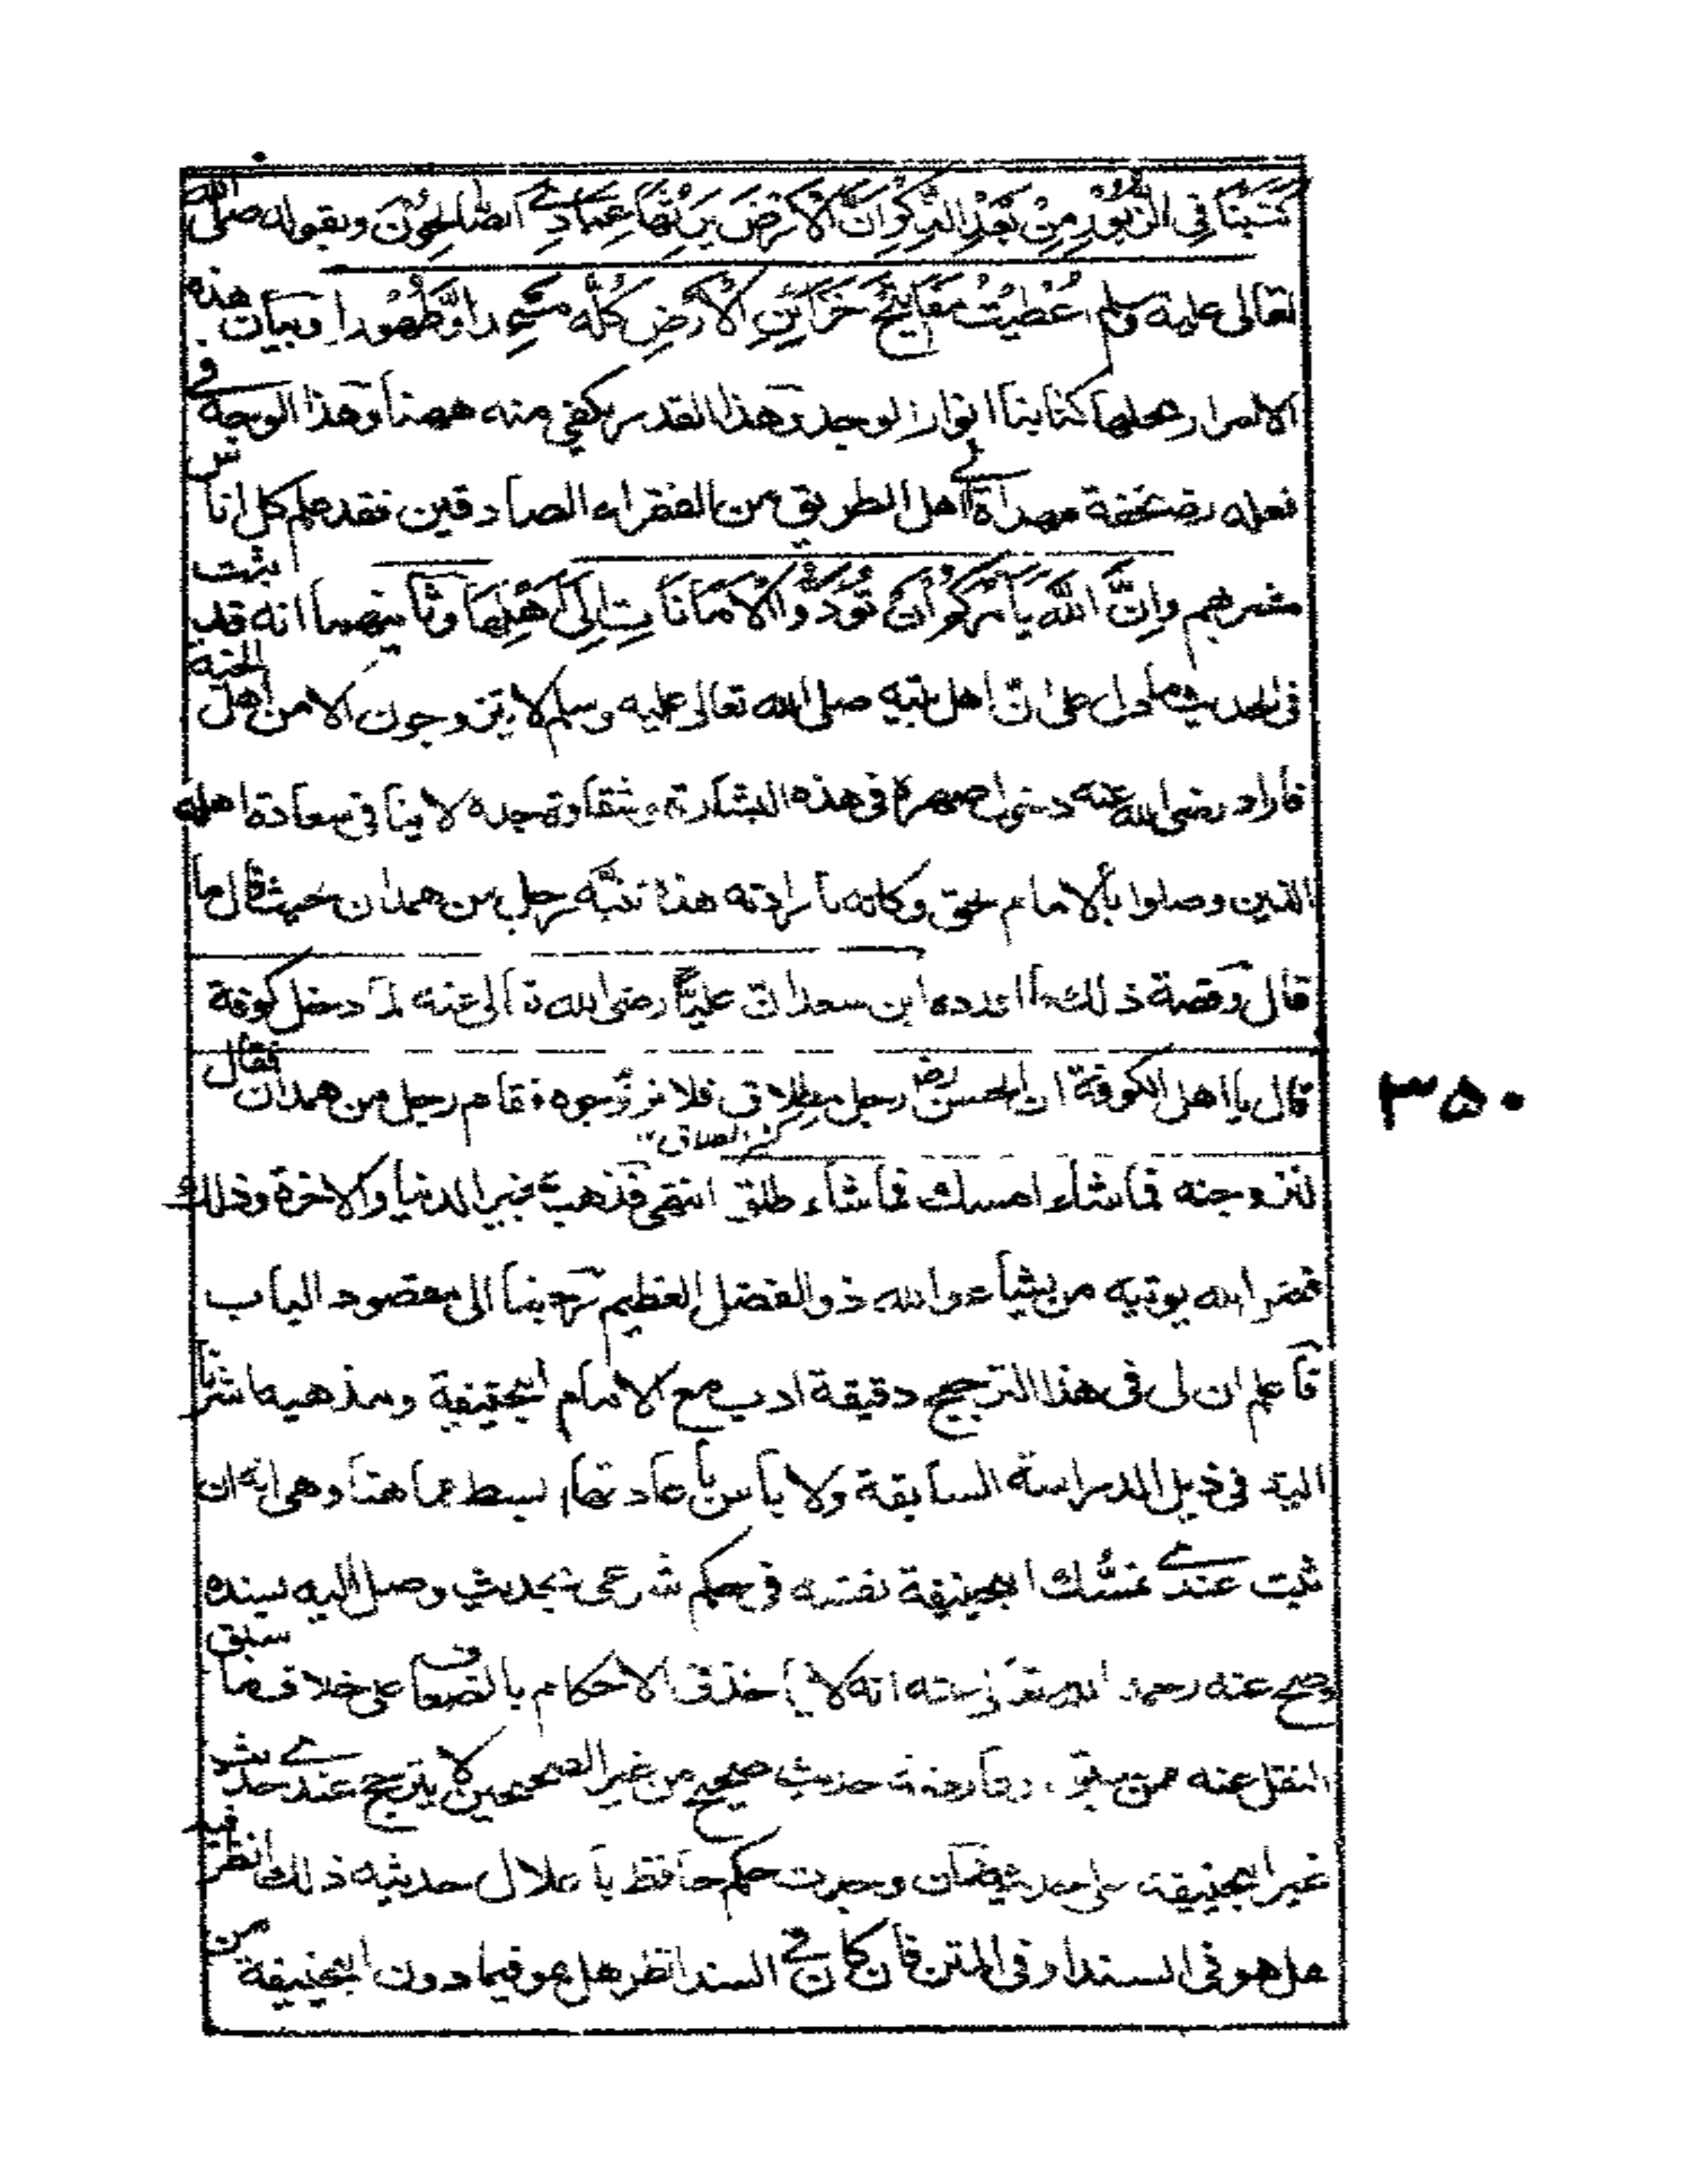 كَتَبْنَا فِي الزَّبُوْرِ مِنْ بَعْدِ الذِّكْرِ اَنَّ الْاَرْضَ يَرِثُهَا عِبَادِے الصّٰلِحُوْنَ وبقوله صلى الله
تعالى عليه وسلم اُعْطِيْتُ مَفَاتِيْحَ خَزَائِنِ الْاَرْضِ كُلّه مسجدا وَّطَهُوْرا وبيان هذه
الاسرار ومحلها كتابنا انوار الوجد وهذا القدر يكفي منه ههنا وهذا الوجه في
فعله رضـ تحفة مهداة لے اهل الطريق من الفقراء الصادقين فقد علم كل اناس
مشربهم وَاِنَّ اللّٰهَ يَأْمُرُكُمْ اَنْ تُؤَدُّوا الْاَمَانَاتِ اِلٰى اَهْلِهَا وثانيهما انه قد ثبت
في الحديث ما دل على انّ اهل بيته صلى الله تعالى عليه وسلم لا يتزوجون الا من اهل الجنة
فاراد رضى الله عنه دخول صهره في هذه البشارة وشقاوة جده لا ينافي سعادة اهله
الذين وصلوا بالامام لحق وكانه ما ارادته هذا تنبّه رجل من همدان حيث قال ما
قال وقصة ذلك ما ابن سعد ان عليًّا رضى الله تعالى عنه لما دخل كوفة
قال يا اهل الكوفة ان الحسن رضـ رجل مطلاق فلا تزوّجوه فقام رجل من همدان فقال
كثير الطلاق ١٢
لنزوجنه فما شاء امسك فما شاء طلق انتهى فذهب بخير الدنيا والاخرة وذلك
فضل الله يوتيه من يشاء والله ذو الفضل العظيم رجعنا الى مقصود الباب
فاعلم ان لى في هذا الترجيح دقيقة ادب مع الامام ابيحنيفة ومذهبه اشرنا
اليه في ذيل الدراسة السابقة ولا باس باعادتها بسط مما هنا وهى انه ان
ثبت عندے تمسُّك ابيحنيفة نفسه في حكم شرعى بحديث وصل اليه بسنده
وصح عنه رحمه الله تعالى انه لا ياخذ في الاحكام بالضعاف على خلاف ما سبق
النقل عنه حديث صحيح من غير الصحيحين لا يترجح عندے حديث
غير ابيحنيفة على حديثه فان وجدت حكم حافظ باعلال حديثه ذلك انظر فيه
هل هو في السند او في المتن فان كان في السند انظر هل هو فيما دون ابيحنيفة من
٣٥٠